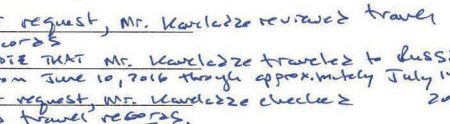 request, Mr. Kaveladze reviewed travel
cords
OTE THAT Mr. Kaveladze traveled to Russi
om June 10, 2016 through approximately July 1
request, Mr. Kaveladze checked 20
travel records.